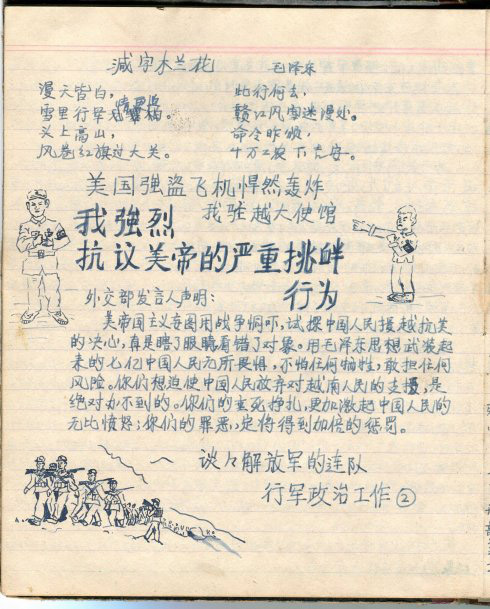 减字木兰花 毛泽东
漫天皆白， 此行何去，
雪里行军情更迫。 赣江风雪迷漫处。
头上高山， 命令昨颁，
风卷红旗过大关。 十万工农下吉安。
美国强盗飞机悍然轰炸
我驻越大使馆
我強烈
抗议美帝的严重挑衅
行为
外交部发言人声明：
美帝国主义妄图用战争恫吓，试探中国人民援越抗美
的决心，真是瞎了眼睛看错了对象。用毛泽东思想武装起
来的七亿中国人民无所畏惧，不怕任何牺牲，敢担任何
风险。你们想迫使中国人民放弃对越南人民的支援，是
绝对办不到的。你们的垂死挣扎，更加激起中国人民的
无比愤怒；你们的罪恶，定将得到加倍的惩罚。
谈々解放军的连队
行军政治工作②